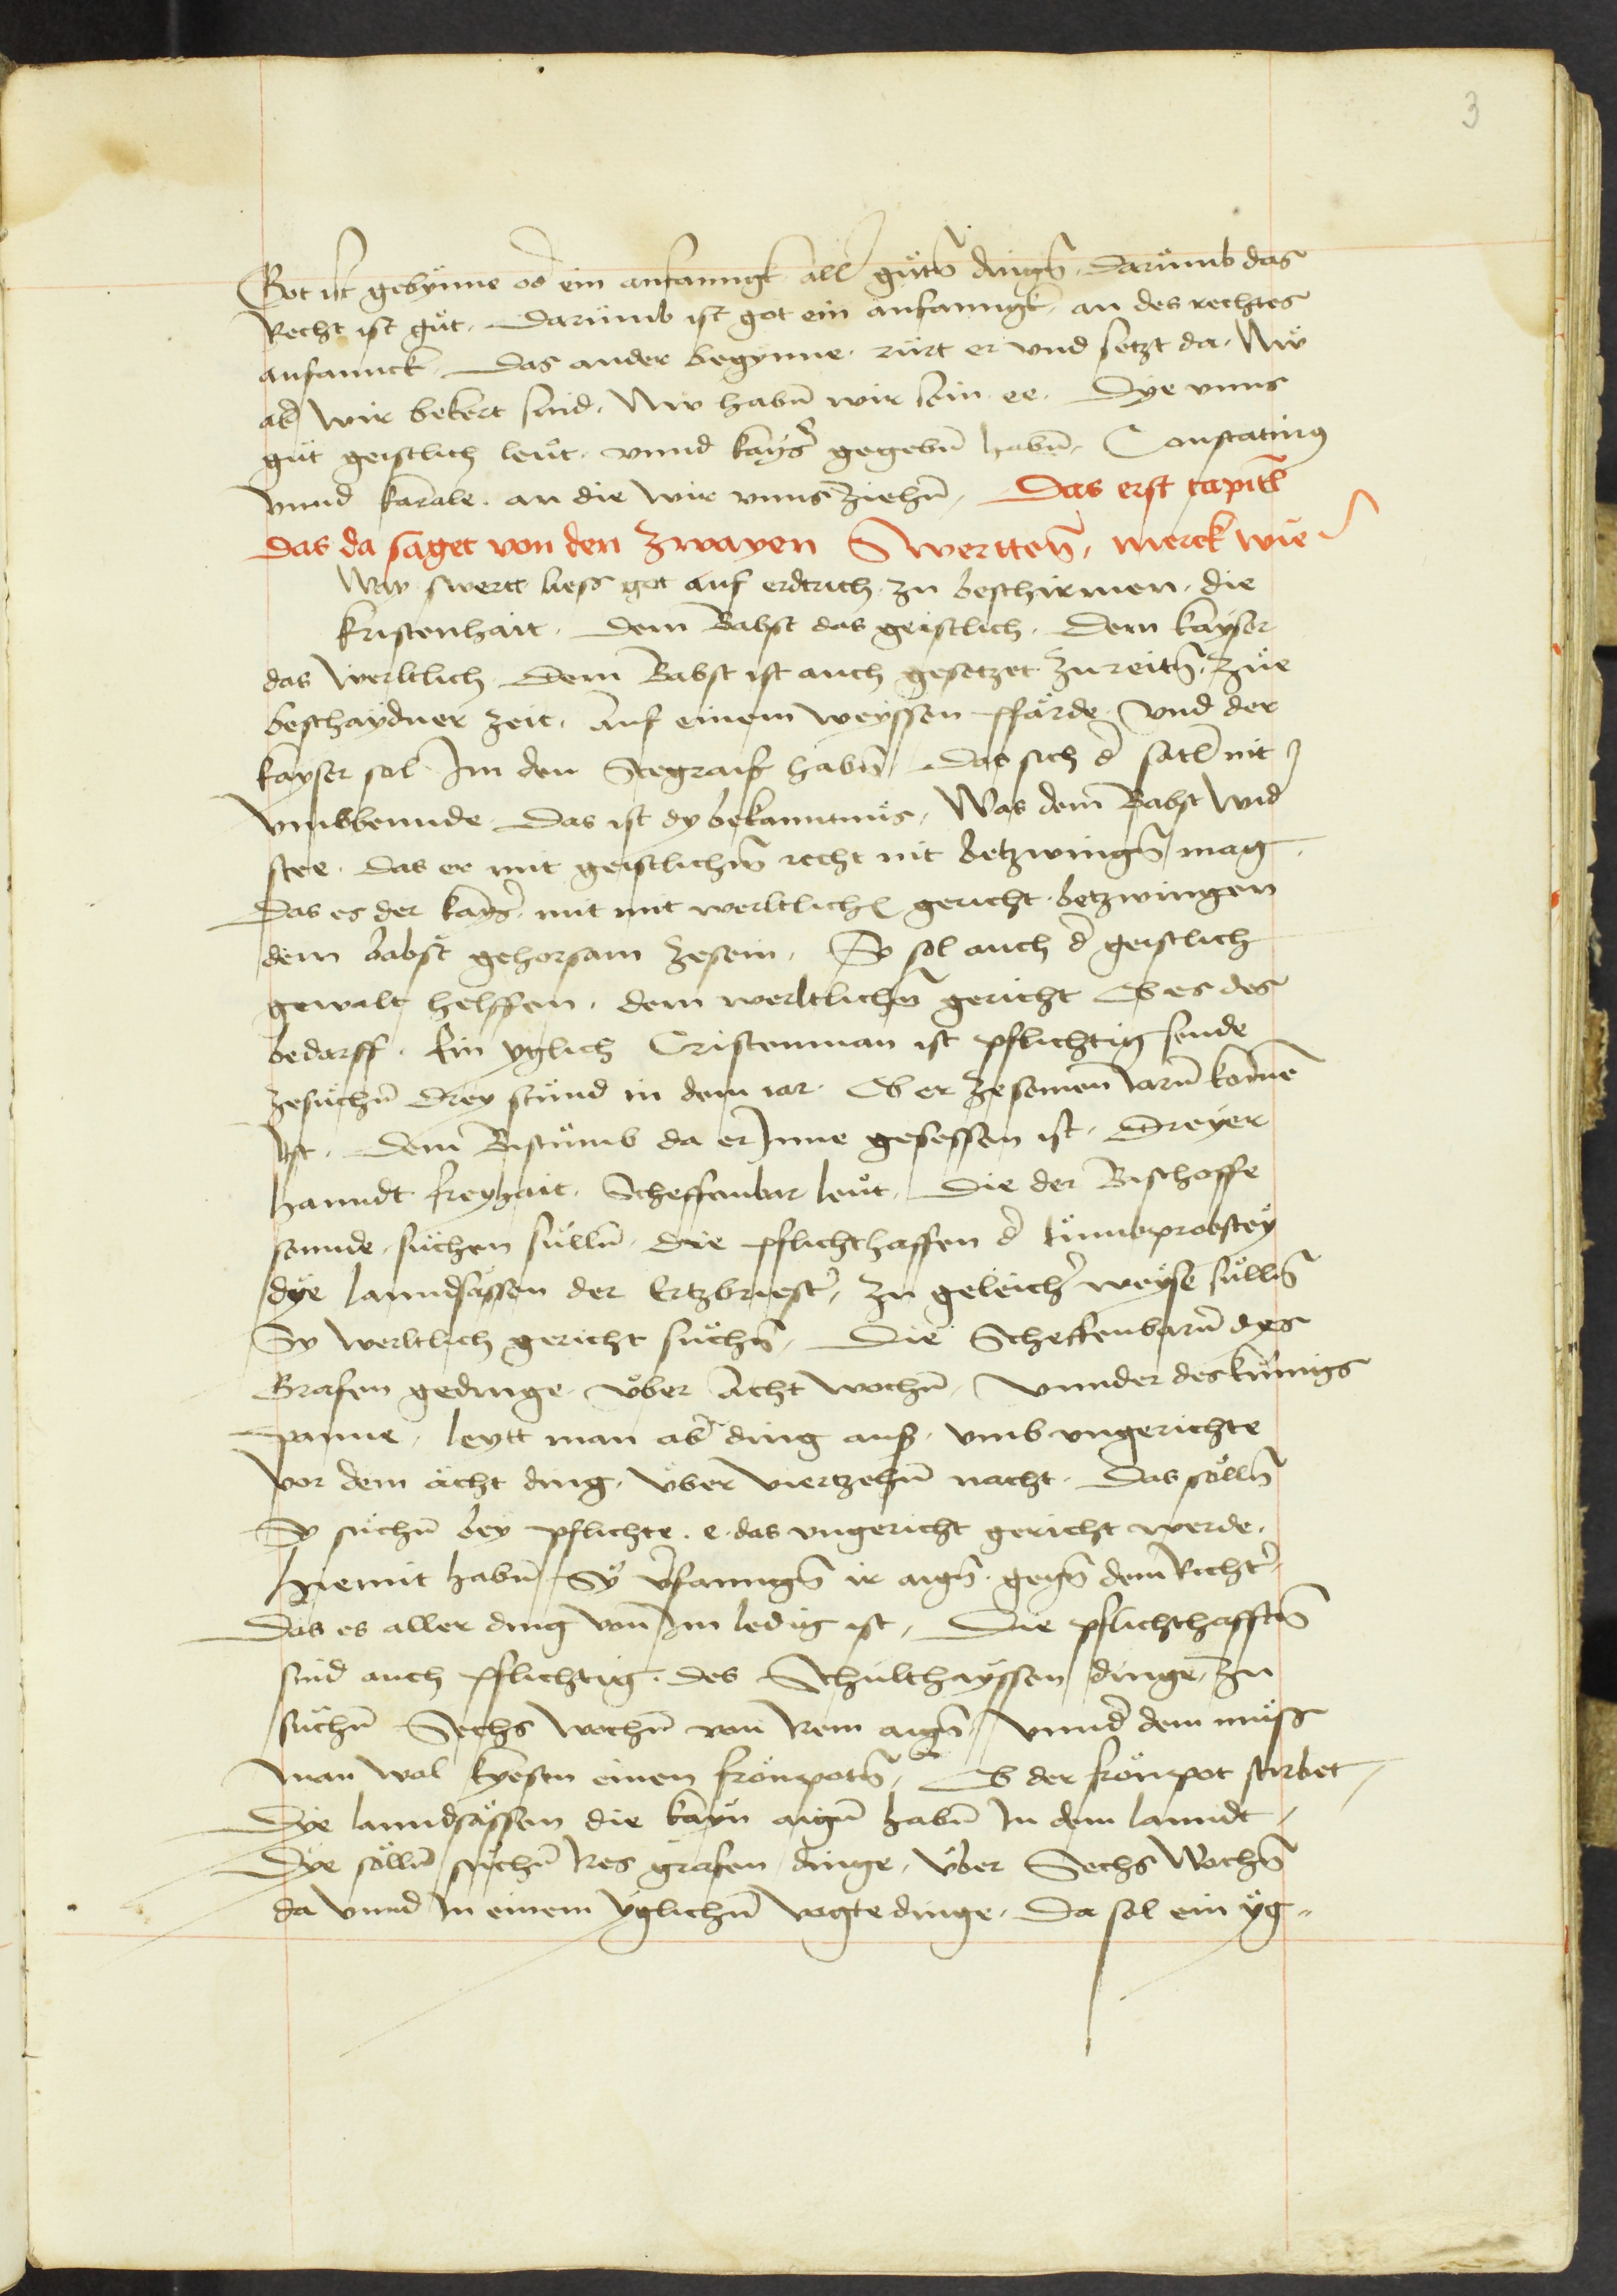 3
Got ist gebynne od̕ ein anfanngk all̕ gůtn̄ dingn̄. Darumb das
Recht ist gůt. Darumb ist got ein anfanngk an des rechtes
anfannck. Das ander begynne. rürt er vnd setzt da. Nw
ab̕ wir bekert sind. Nw habn̄ wir sein ee. Dye vnns
gůt geistlich leůt. vnnd kayß̕ gegebn̄ habn̄. Constatinꝰ
vnnd karale. an die wir vnns ziehn̄. Das erst capitl̄
das da saget von den zwayen Swertten̄, merck wie
Way swertt liess got auf erdtrich zu beschirmen. die
kristenhait. Dem Babst das geistlich. Dem kayser
das werltlich. Dem Babst ist auch gesetzet zu reitn̄. zue
beschaydner zeit. Auf einem weyssen pfärde. Vnd der
kayser sol Im den Stegraif habn̄. Das sich d̕ satl̄ nit
vmbbennde. Das ist dy bekanntnüs. Was dem Babst wid̕
stee. das er mit geistlichm̄ recht nit betzwingn̄ mag.
Das es der kayß̕. mit mit werltlichē gericht betzwingen
dem babst gehorsam zesein. So sol auch d̕ geistlich
gewalt helffen. dem werltlichn̄ gericht Ob es des
bedarff. Ein yglich Cristenman ist pflichtig sende
zesůchn̄ Drey stund in dem iar. Ob er zesemen̄ iarn̄ komē
Ist. Dem Bistumb da er Inne gesessen ist. Dreyer
hanndt freyhait. Scheffenbar leůt. Die der Bischoffe
sennde. sůchen sullen̄. die pflichthaffen d̕ tumbprobstey
dye lanndsässen der Ertzbriest̕. zu geleich̕ weyse sülln̄
Sy werltlich gericht sůchn̄. Die Scheffenbarn̄ dys
Grafen gedinge. über Acht wochn̄. Vnnder des künigs
panne. leytt man ab̕ ding auß. vmb vngerichte
vor dem ächt ding. über viertzehn̄ nacht. Das sölln̄
Sy sůchn̄ bey pflichte. e. das vngericht gericht werde.
Hiemit habn̄ Sy v̕fanngn̄ ir aygn̄. gegn̄ dem Richt̕
Das es aller ding von Im ledig ist. Die pflichthafftn̄
sind auch pflichtig. des Schulthayssen dinge zu
sůchn̄ Sechs wochn̄ von Irem aygn̄. Vnnd̕ dem můß
man wol kyesen einen fronpotn̄. Ob der fronpot stirbet
Dye lanndsässen die kayn aign̄ habn̄ In dem lanndt
Dye söllen̄ sůchn̄ Irs grafen dinge. über Sechs Wochn̄
da vnnd In einem yglichn̄ vogte dinge. Da sol ein yg„